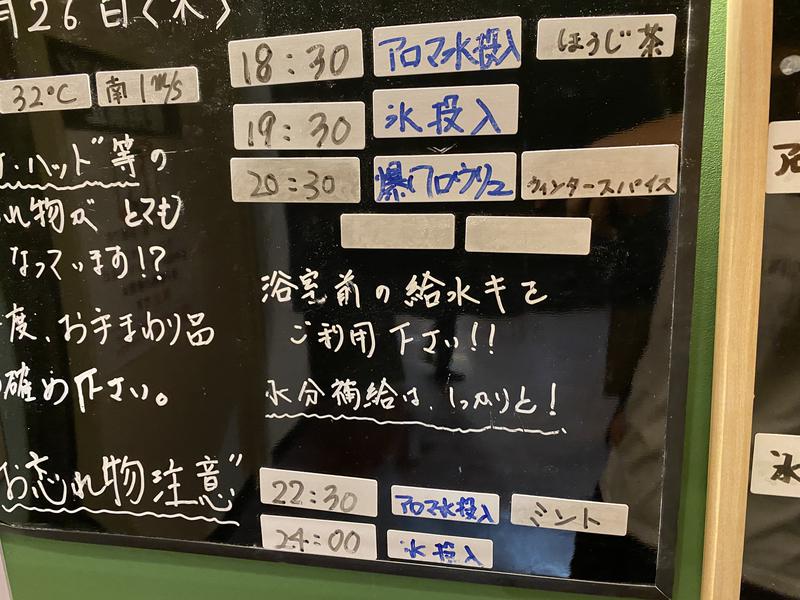 月26日〈木〉
32℃ 南1m/s
ハット"等の
れ物が とても
なっています!?
度、お手まわり品
確め下さい。
お忘れ物注意"
18:30 アロマ水投入 ほうじ茶
19:30 氷投入
20:30 爆アロウリュ ウィンタースパイス
浴室前の給水キを
ご利用下さい!!
水分補給は、しっかりと!
22:30 アロマ水投入 ミント
24:00 氷投入
氷